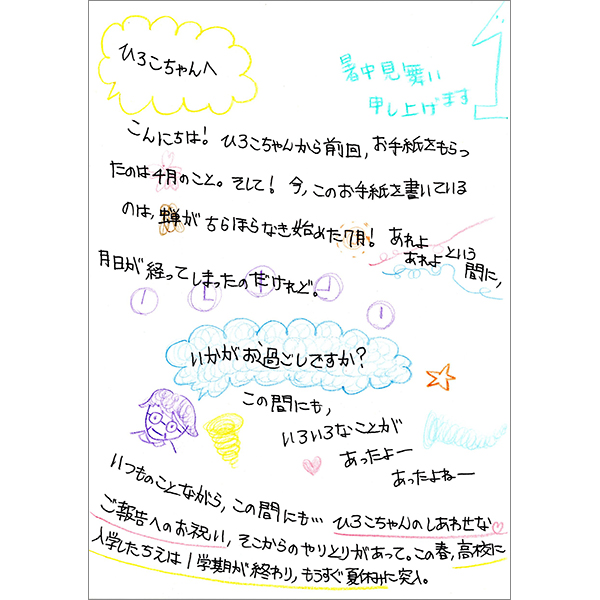 ひろこちゃんへ
暑中見舞い
申し上げます
こんにちは！ひろこちゃんから前回，お手紙をもらっ
たのは4月のこと。そして！今，このお手紙を書いている
のは，蝉がちらほらなき始めた7月！あれよ
あれよという
間に，
月日が経ってしまったのだけれど。
いかがお過ごしですか？
この間にも，
いろいろなことが
あったよー
あったよねー
いつものことながら，この間にも…ひろこちゃんのしあわせな
ご報告へのお祝い，そこからのやりとりがあって。この春，高校に
入学したちえは1学期が終わり，もうすぐ夏休みに突入。